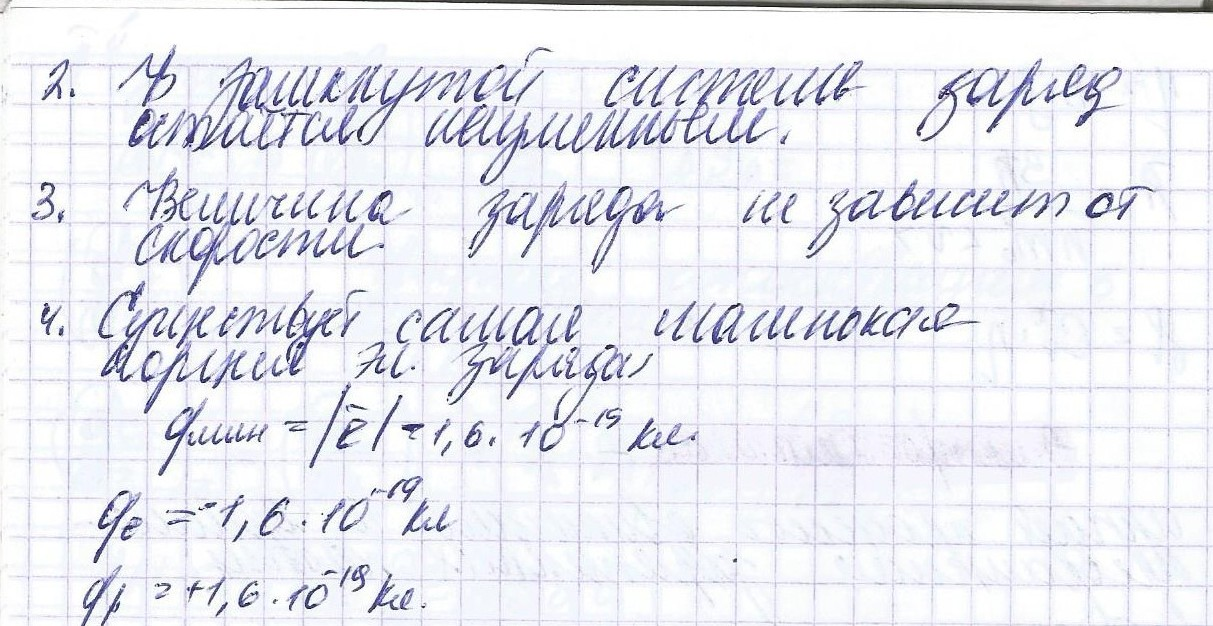 2. В замкнутой системе заряд
остаётся неизменным.
3. Величина заряда не зависит от
скорости.
4. Существует самая маленькая
порция эл. заряда
qмин = |ē| = 1,6 · 10⁻¹⁹ Кл.
qe = -1,6 · 10⁻¹⁹ Кл
qp = +1,6 · 10⁻¹⁹ Кл.